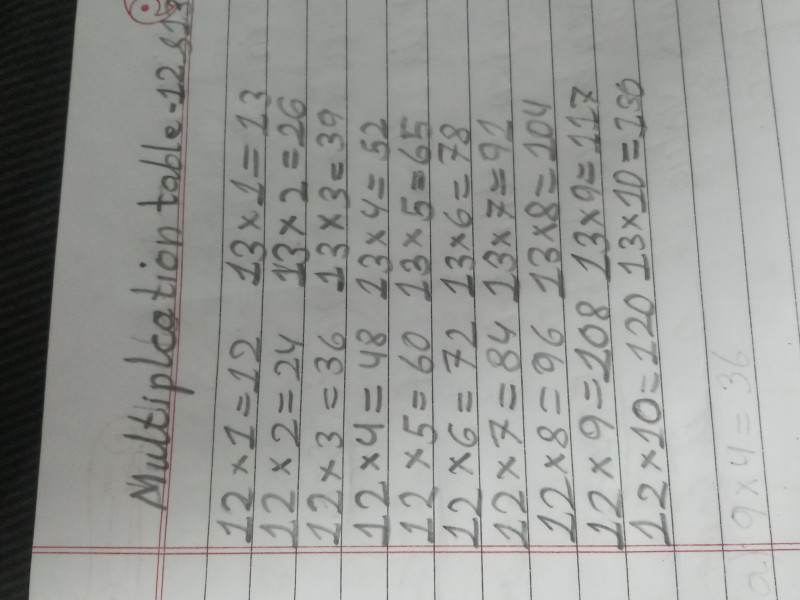 Multiplcation table-12 &13
12 × 1 = 12 13 × 1 = 13
12 × 2 = 24 13 × 2 = 26
12 × 3 = 36 13 × 3 = 39
12 × 4 = 48 13 × 4 = 52
12 × 5 = 60 13 × 5 = 65
12 × 6 = 72 13 × 6 = 78
12 × 7 = 84 13 × 7 = 91
12 × 8 = 96 13 × 8 = 104
12 × 9 = 108 13 × 9 = 117
12 × 10 = 120 13 × 10 = 130
a) 9 × 4 = 36